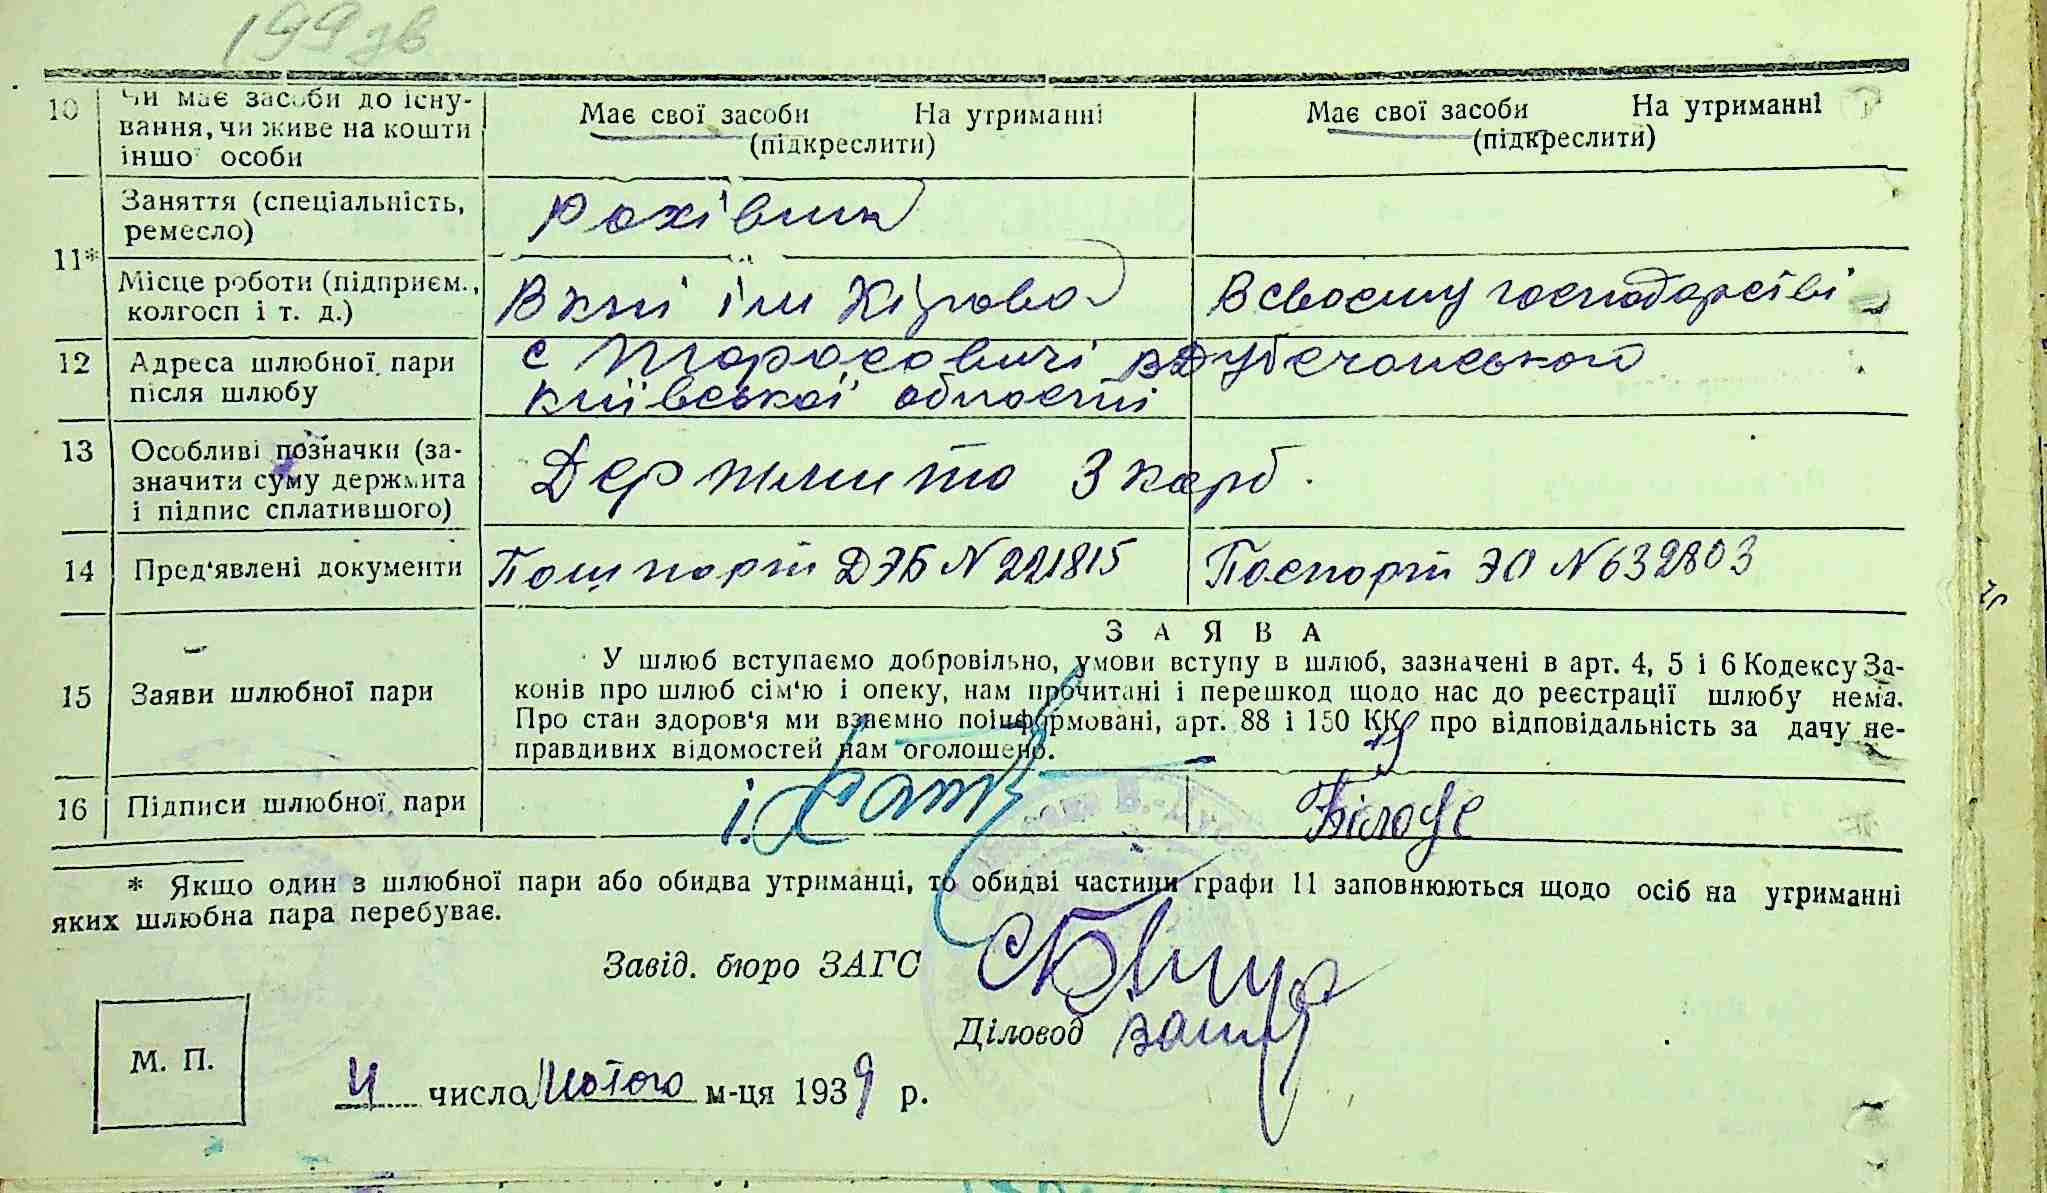 199 зв
10 Чи має засоби до існу-
вання, чи живе на кошти
іншої особи
Має свої засоби На утриманні
(підкреслити)
Має свої засоби На утриманні
(підкреслити)
11* Заняття (спеціальність,
ремесло)
рахівник
Місце роботи (підприєм.,
колгосп і т. д.)
В клі ім Кірова
В своєму господарстві
12 Адреса шлюбної пари
після шлюбу
с Тарасовичі В Дубечанського
київської області
13 Особливі позначки (за-
значити суму держмита
і підпис сплатившого)
Держмито 3 карб.
14 Пред'явлені документи
Пашпорт ДЭБ N 221815
Паспорт ЭО N 632803
15 Заяви шлюбної пари
ЗАЯВА
У шлюб вступаємо добровільно, умови вступу в шлюб, зазначені в арт. 4, 5 і 6 Кодексу За-
конів про шлюб сім'ю і опеку, нам прочитані і перешкод щодо нас до реєстрації шлюбу нема.
Про стан здоров'я ми взаємно поінформовані, арт. 88 і 150 КК про відповідальність за дачу не-
правдивих відомостей нам оголошено.
16 Підписи шлюбної пари
* Якщо один з шлюбної пари або обидва утриманці, то обидві частини графи 11 заповнюються щодо осіб на утриманні
яких шлюбна пара перебуває.
Завід. бюро ЗАГС
Діловод
М. П.
4 число лютого м-ця 1939 р.